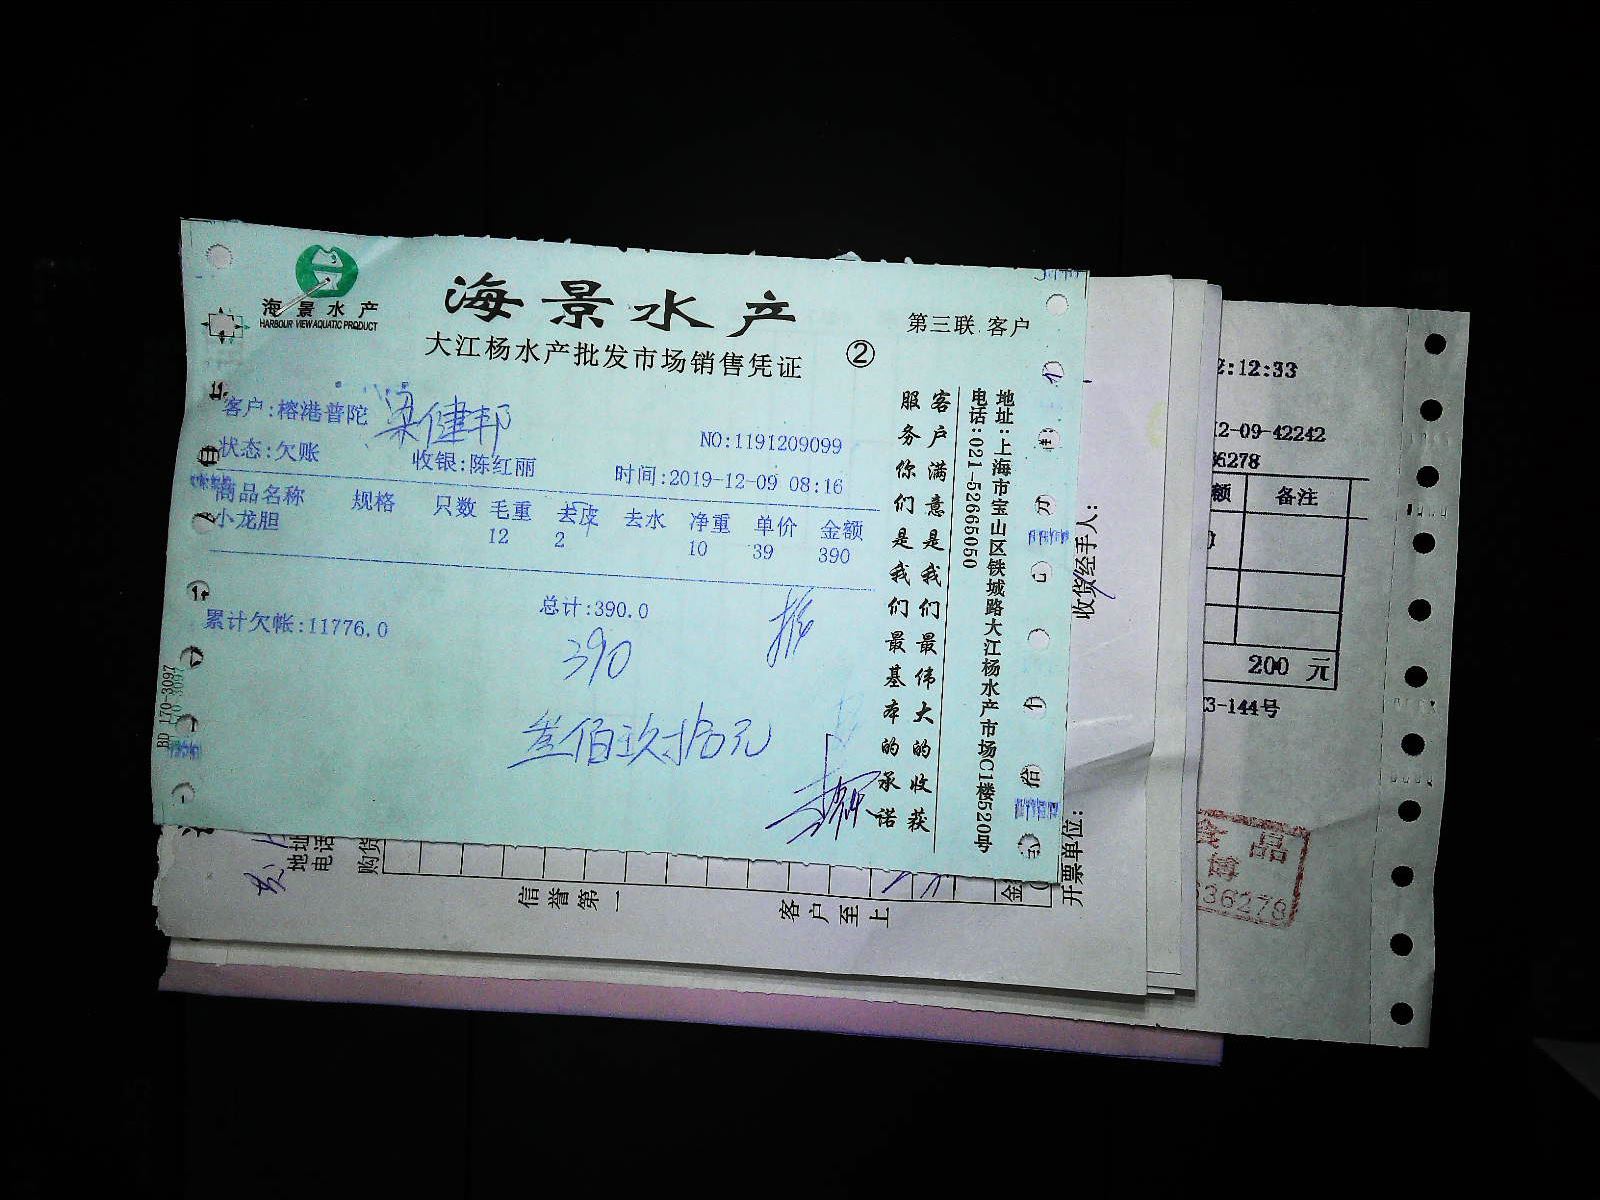 海景水产
HARBOUR VIEW AQUATIC PRODUCT
海景水产
大江杨水产批发市场销售凭证
②
第三联 客户
客户:榕港普陀
梁健邦
NO:1191209099
状态:欠账
收银:陈红丽
时间:2019-12-09 08:16
商品名称 规格 只数 毛重 去皮 去水 净重 单价 金额
小龙胆 12 2 10 39 390
总计:390.0
累计欠帐:11776.0
390
叁佰玖拾元
BD 170-3097
客户满意是我们最伟大的收获
服务你们是我们最基本的承诺
地址:上海市宝山区铁城路大江杨水产市场C1楼520号
电话:021-52665050
收货经手人:
开票单位:
地址
电话
购货
信誉第一
客户至上
金
2:12:33
12-09-42242
36278
额 备注
200 元
3-144号
食品
博
636278